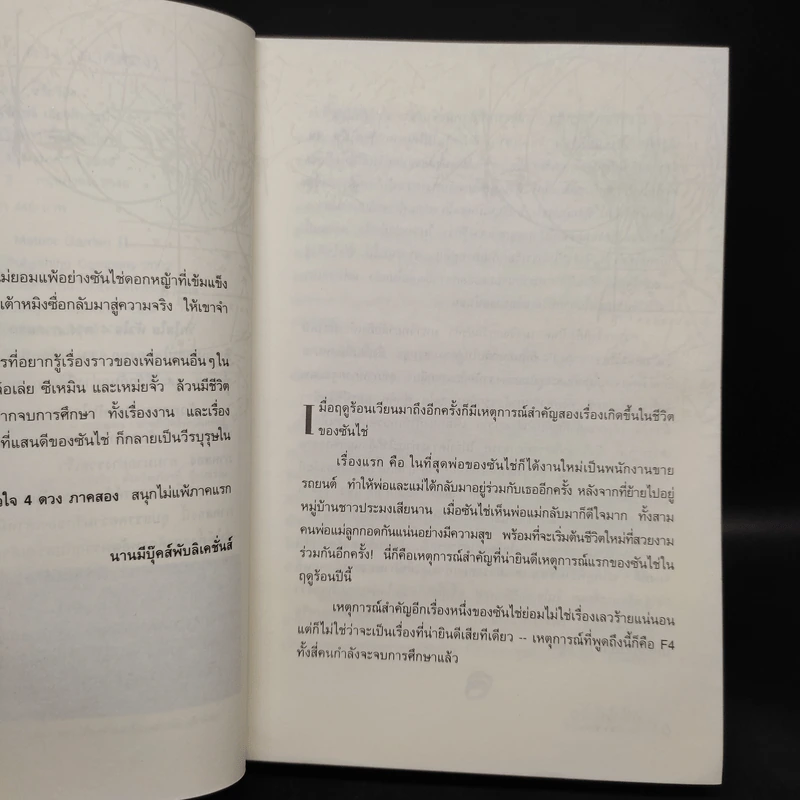 ม่ยอมแพ้อย่างซันไช่ดอกหญ้าที่เข้มแข็ง
เต้าหมิงซื่อกลับมาสู่ความจริง ให้เขาจำ
รที่อยากรู้เรื่องราวของเพื่อนคนอื่นๆใน
อเล่ย ซีเหมิน และเหม่ยจั้ว ล้วนมีชีวิต
ากจบการศึกษา ทั้งเรื่องงาน และเรื่อง
ที่แสนดีของซันไช่ ก็กลายเป็นวีรบุรุษใน
วใจ 4 ดวง ภาคสอง สนุกไม่แพ้ภาคแรก
นานมีบุ๊คส์พับลิเคชั่นส์
เมื่อฤดูร้อนเวียนมาถึงอีกครั้งก็มีเหตุการณ์สำคัญสองเรื่องเกิดขึ้นในชีวิต
ของซันไช่
เรื่องแรก คือ ในที่สุดพ่อของซันไช่ก็ได้งานใหม่เป็นพนักงานขาย
รถยนต์ ทำให้พ่อและแม่ได้กลับมาอยู่ร่วมกับเธออีกครั้ง หลังจากที่ย้ายไปอยู่
หมู่บ้านชาวประมงเสียนาน เมื่อซันไช่เห็นพ่อแม่กลับมาก็ดีใจมาก ทั้งสาม
คนพ่อแม่ลูกกอดกันแน่นอย่างมีความสุข พร้อมที่จะเริ่มต้นชีวิตใหม่ที่สวยงาม
ร่วมกันอีกครั้ง! นี่ก็คือเหตุการณ์สำคัญที่น่ายินดีเหตุการณ์แรกของซันไช่ใน
ฤดูร้อนปีนี้
เหตุการณ์สำคัญอีกเรื่องหนึ่งของซันไช่ย่อมไม่ใช่เรื่องเลวร้ายแน่นอน
แต่ก็ไม่ใช่ว่าจะเป็นเรื่องที่น่ายินดีเสียทีเดียว -- เหตุการณ์ที่พูดถึงนี้ก็คือ F4
ทั้งสี่คนกำลังจะจบการศึกษาแล้ว